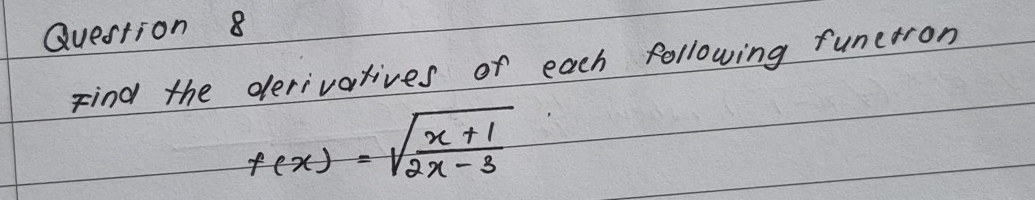 Question 8
Find the derivatives of each following function
f(x) = √((x + 1)/(2x - 3))